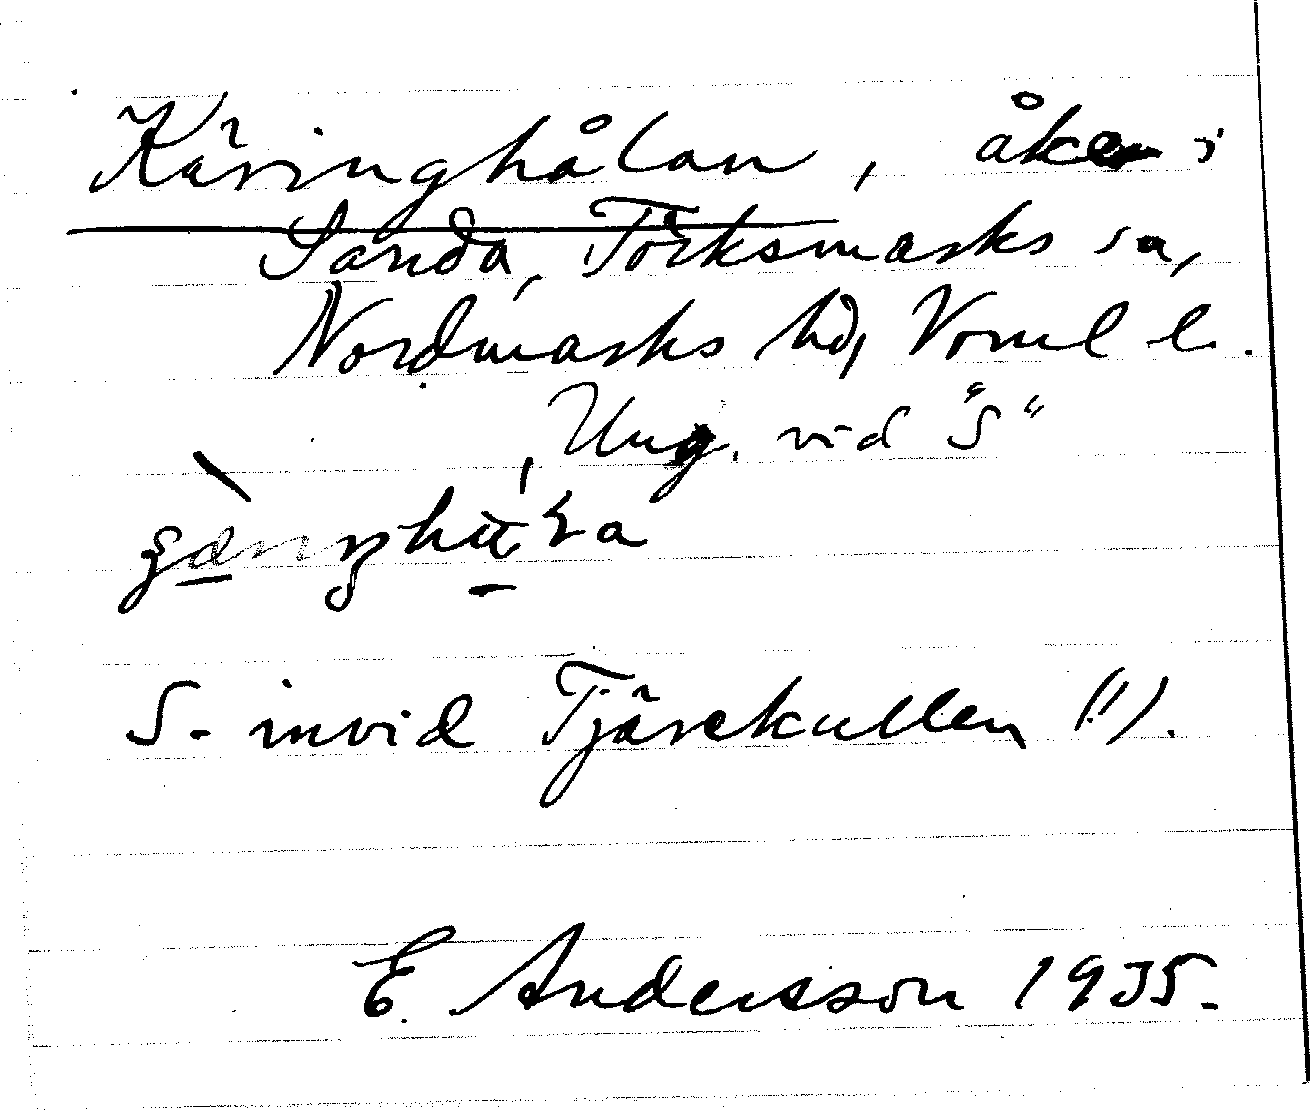 Käringhålan, åker i
Sanda, Töcksmarks sn,
Nordmarks hd, Vrml l.
Ung. vid "S"
S. invid Tjärekullen (!).
E. Andersson 1935.